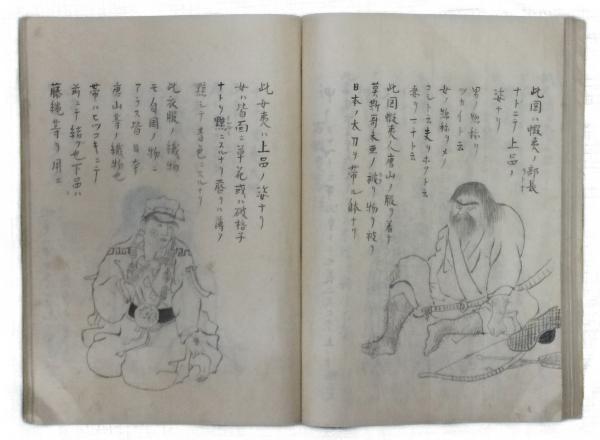 此図ハ蝦夷ノ部長
ナトニテ上品ノ
姿ナリ
男ノ惣称ヲ
ツカイト云
女ノ惣称ヲメノ
コシト云夷ヲホツト云
乗リ一ニナト云
此図蝦夷人唐山ノ服ヲ着テ
莫斯哥未亜ノ織リ物ヲ被リ
日本ノ太刀ヲ帯ル躰ナリ
此女夷ハ上品ノ姿ナリ
女ハ皆面ニ草花或ハ破格子
ナトヲ黥ニスルナリ唇ヲハ薄ク
黥シテ青色ニスルナリ
此衣服ノ織物
モ自国ノ物ニ
アラス皆日本
唐山等ノ織物也
帯ハヒツコキニテ
前ニテ結ヲ也下品ハ
藤縄等ヲ用ユ